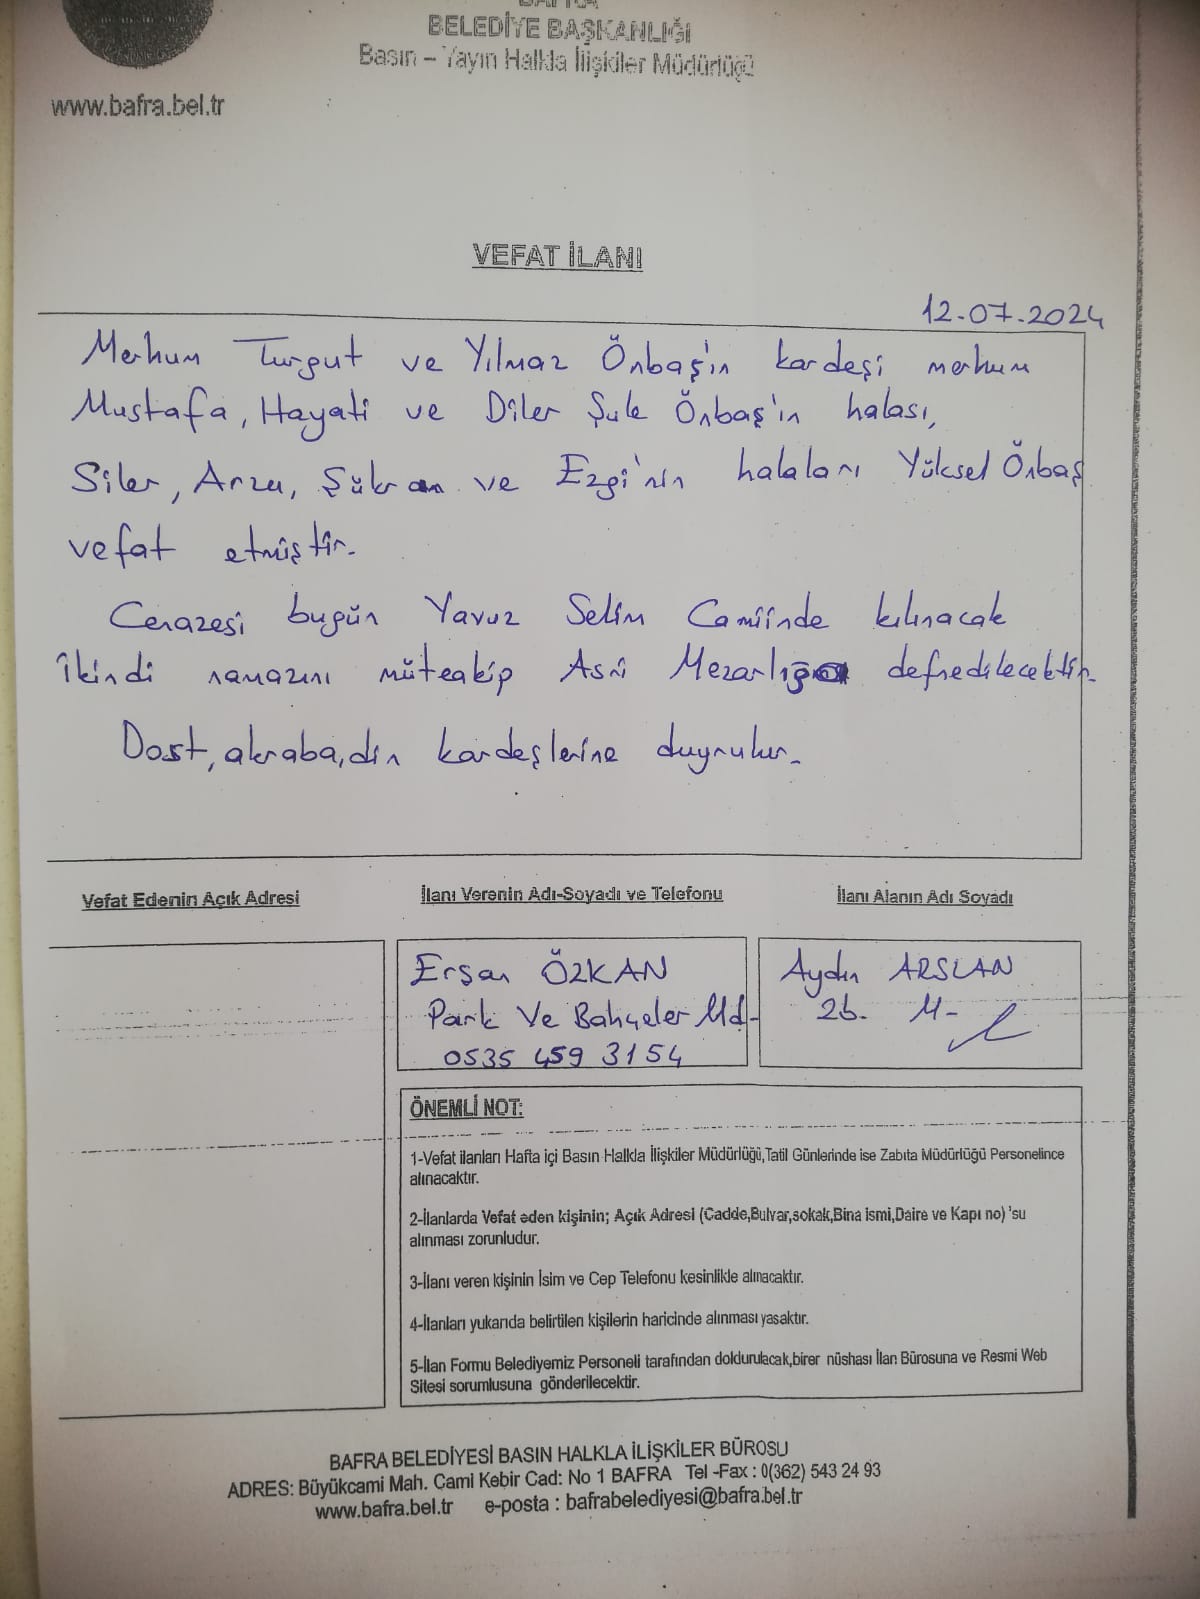 BAFRA
BELEDİYE BAŞKANLIĞI
Basın – Yayın Halkla İlişkiler Müdürlüğü
www.bafra.bel.tr
VEFAT İLANI
12-07-2024
Merhum Turgut ve Yılmaz Önbaş'ın kardeşi merhum
Mustafa, Hayati ve Diler Şule Önbaş'ın halası,
Siler, Arzu, Şükran ve Ezgi'nin halaları Yüksel Önbaş
vefat etmiştir.
Cenazesi bugün Yavuz Selim Camiinde kılınacak
ikindi namazını müteakip Asri Mezarlığa defnedilecektir.
Dost, akraba, din kardeşlerine duyrulur.
Vefat Edenin Açık Adresi
İlanı Verenin Adı-Soyadı ve Telefonu
İlanı Alanın Adı Soyadı
Erşan ÖZKAN
Park Ve Bahçeler Md-
0535 459 3154
Aydın ARSLAN
M-
ÖNEMLİ NOT:
1-Vefat ilanları Hafta içi Basın Halkla İlişkiler Müdürlüğü,Tatil Günlerinde ise Zabıta Müdürlüğü Personelince
alınacaktır.
2-İlanlarda Vefat eden kişinin; Açık Adresi (Cadde,Bulvar,sokak,Bina ismi,Daire ve Kapı no) 'su
alınması zorunludur.
3-İlanı veren kişinin İsim ve Cep Telefonu kesinlikle alınacaktır.
4-İlanları yukarıda belirtilen kişilerin haricinde alınması yasaktır.
5-İlan Formu Belediyemiz Personeli tarafından doldurulacak,birer nüshası İlan Bürosuna ve Resmi Web
Sitesi sorumlusuna gönderilecektir.
BAFRA BELEDİYESİ BASIN HALKLA İLİŞKİLER BÜROSU
ADRES: Büyükcami Mah. Cami Kebir Cad: No 1 BAFRA Tel -Fax : 0(362) 543 24 93
www.bafra.bel.tr e-posta : bafrabelediyesi@bafra.bel.tr